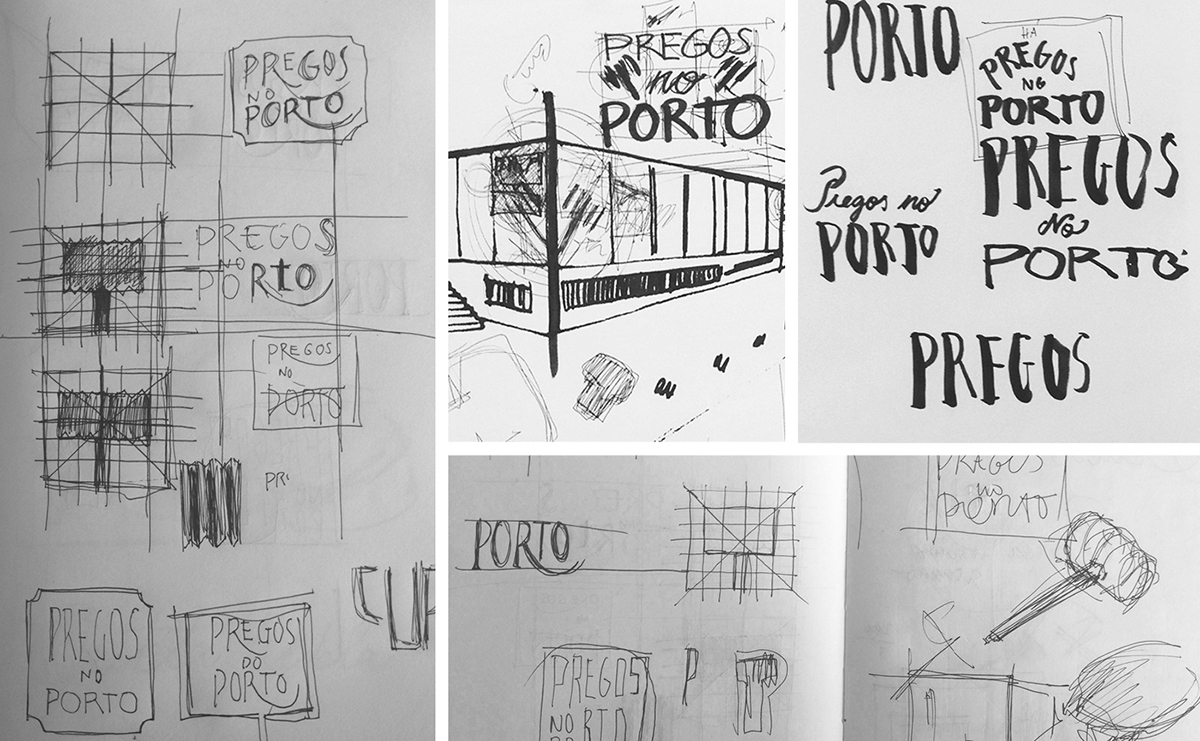 PREGOS
NO
PORTO
PREGOS
NO
PORTO
PREGOS
NO
PORTO
PR
PREGOS
NO
PORTO
PREGOS
DO
PORTO
PREGOS
no
PORTO
PORTO
HA
PREGOS
NO
PORTO
Pregos no
PORTO
PREGOS
No
PORTO
PREGOS
PORTO
PREGOS
NO
PORTO
P
PREGOS
no
PORTO